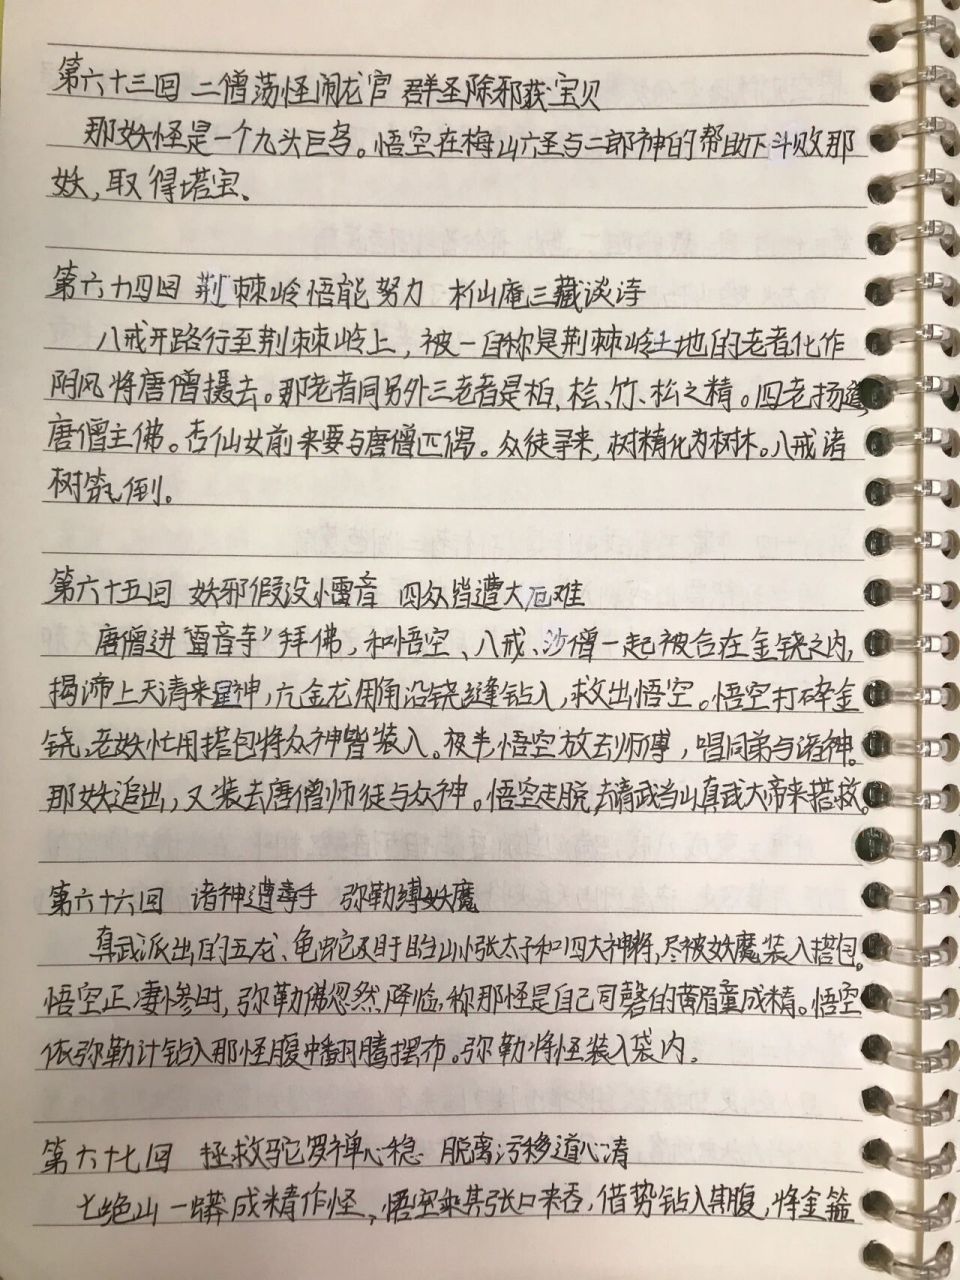 第六十三回 二僧荡怪闹龙宫 群圣除邪获宝贝
那妖怪是一个九头巨鸟。悟空在梅山六圣与二郎神的帮助下斗败那
妖,取得塔宝、
第六十四回 荆棘岭悟能努力 木仙庵三藏谈诗
八戒开路行至荆棘岭上,被一自称是荆棘岭土地的老者化作
阴风将唐僧摄去。那老者同另外三老者是柏、桧、竹、松之精。四老扬道
唐僧主佛。杏仙女前来要与唐僧匹偶。众徒寻来,树精化为树木。八戒诸
树筑倒。
第六十五回 妖邪假设小雷音 四众皆遭大厄难
唐僧进“雷音寺”拜佛,和悟空、八戒、沙僧一起被合在金铙之内,
揭谛上天请来星神,亢金龙用角沿铙缝钻入,救出悟空。悟空打碎金
铙,老妖忙用搭包将众神皆装入。夜半,悟空放去师傅,唱同弟与诸神。
那妖追出,又装去唐僧师徒与众神。悟空走脱,去请武当山真武大帝来搭救。
第六十六回 诸神遭毒手 弥勒缚妖魔
真武派出的五龙、龟蛇及盱眙山小张太子和四大神将,尽被妖魔装入搭包。
悟空正凄惨时,弥勒佛忽然降临,称那怪是自己司磬的黄眉童成精。悟空
依弥勒计钻入那怪腹中翻腾摆布。弥勒将怪装入袋内。
第六十七回 拯救驼罗禅心稳 脱离污秽道心清
七绝山一蟒成精作怪,悟空乘其张口来吞,借势钻入其腹,将金箍